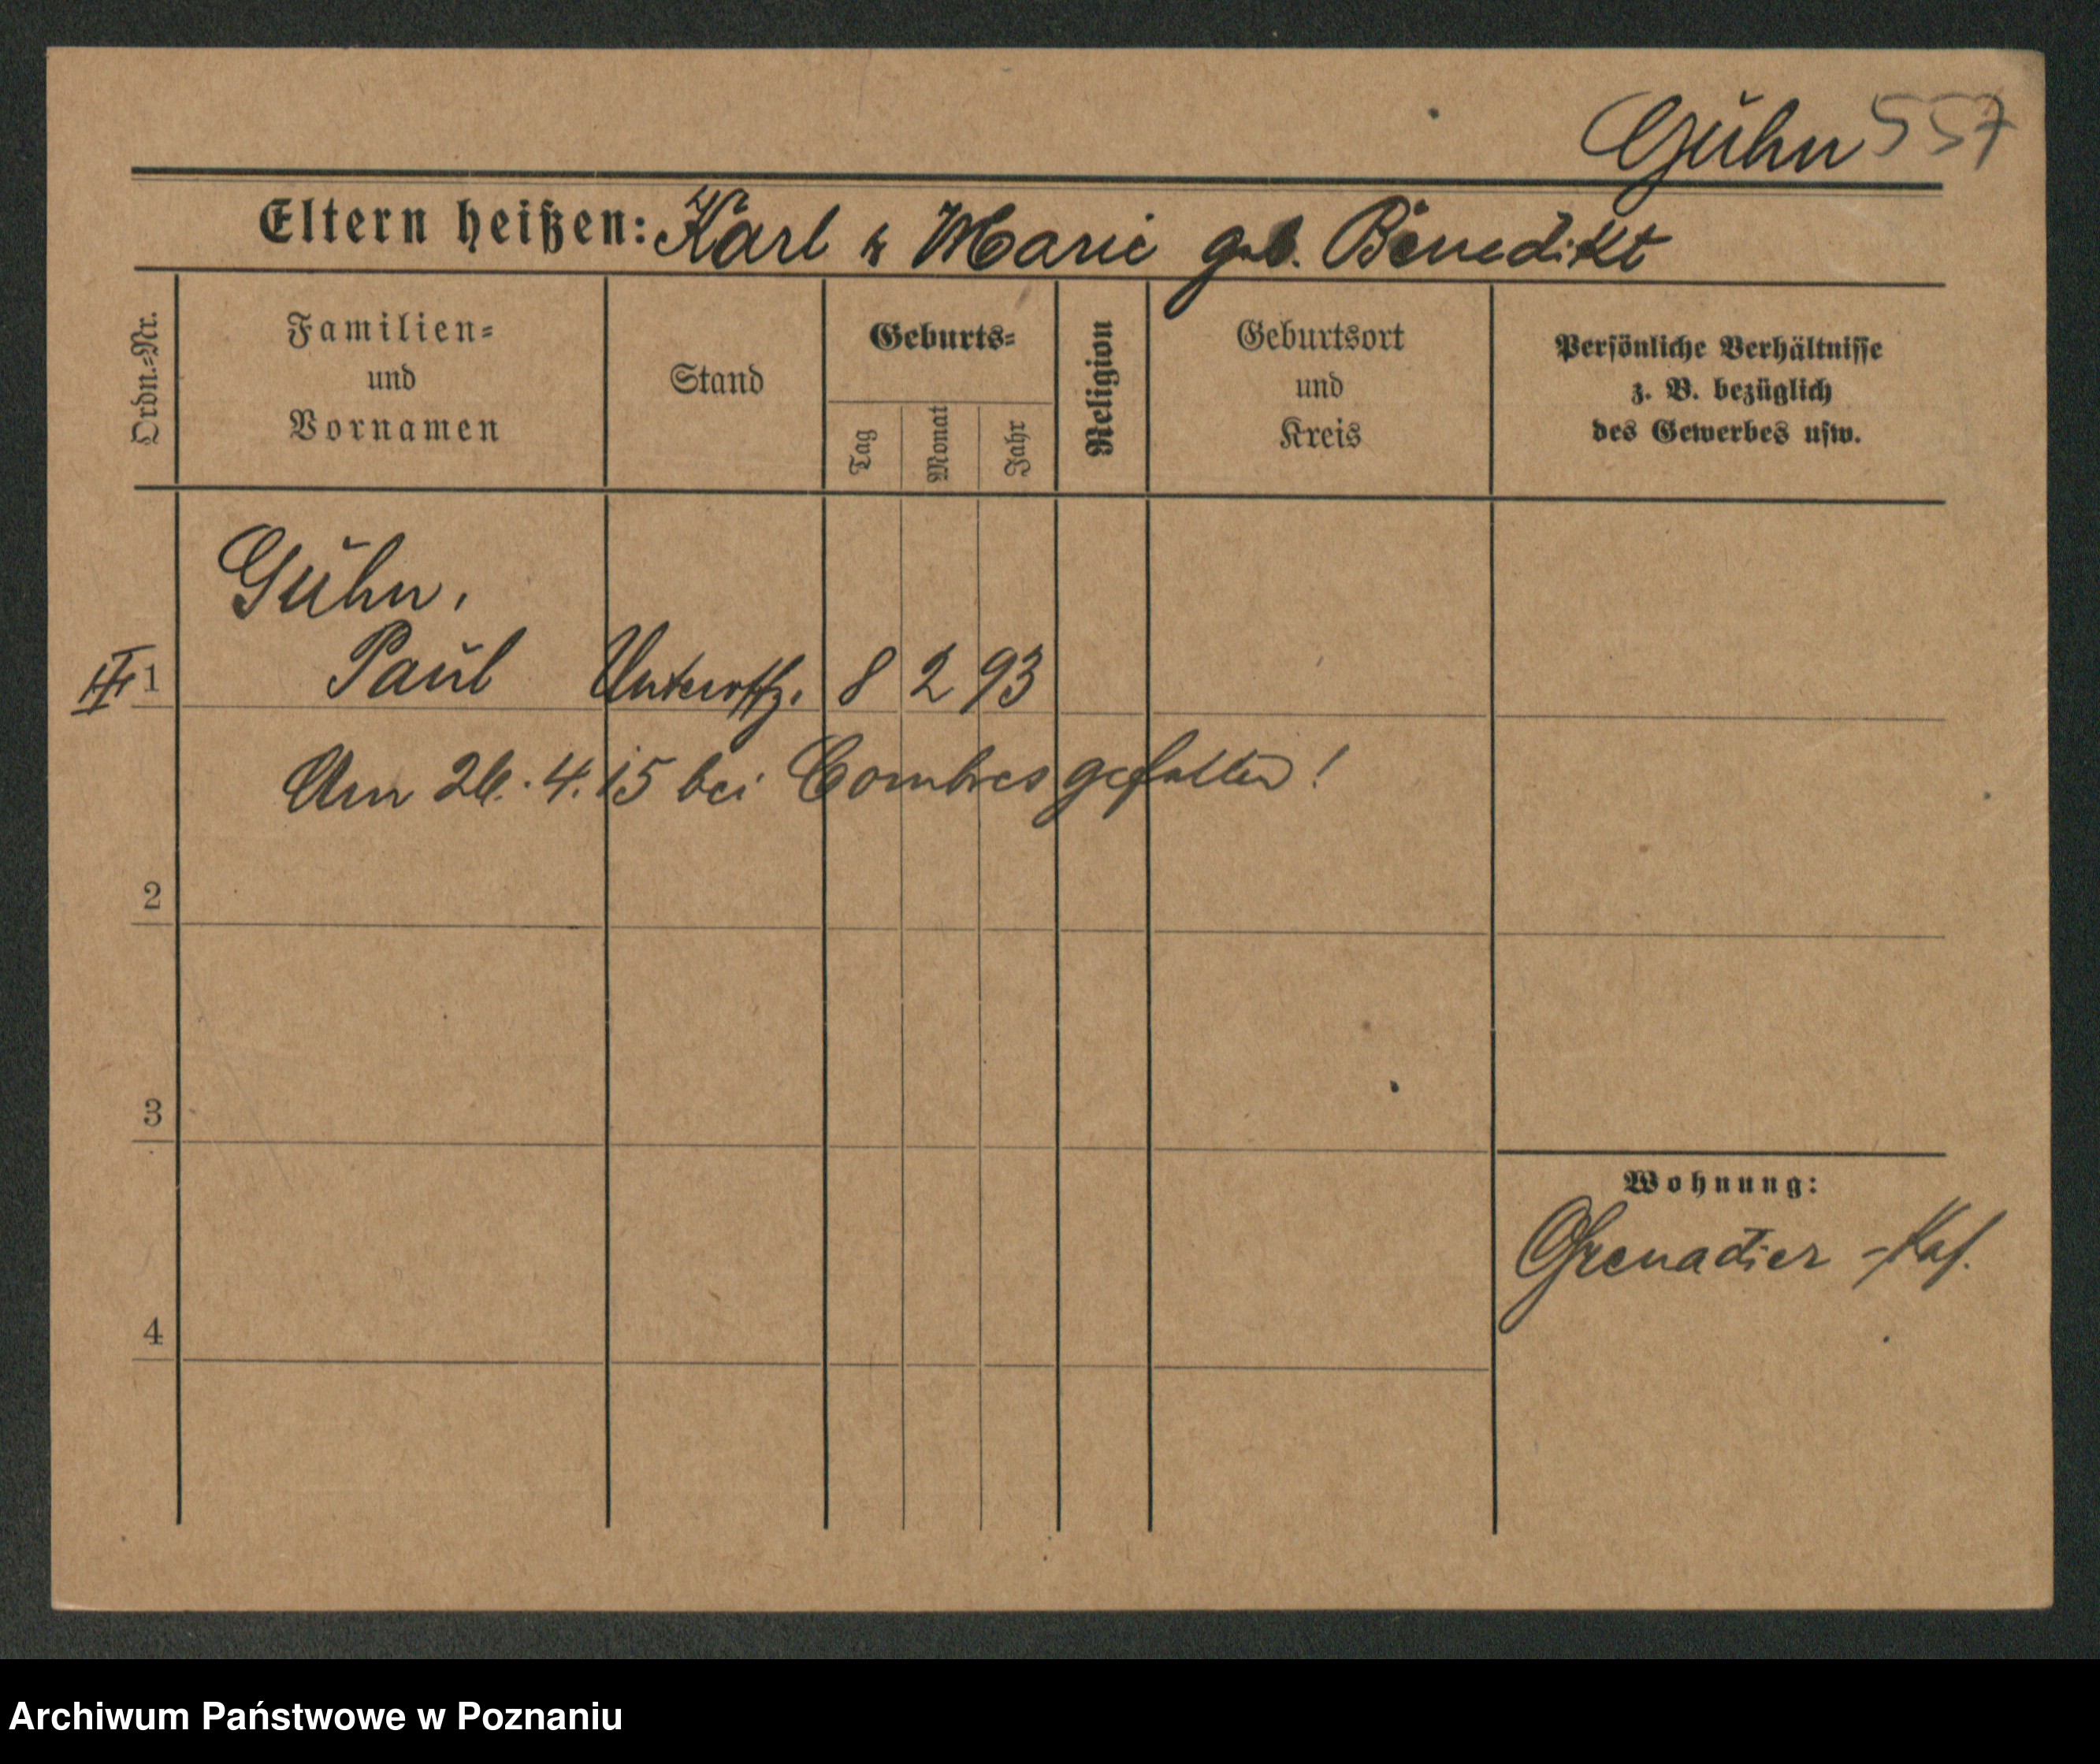 Guhn 557
Eltern heißen: Karl & Marie geb. Benedikt
Ordn.=Nr.
Familien=
und
Vornamen
Stand
Geburts=
Tag
Monat
Jahr
Religion
Geburtsort
und
Kreis
Persönliche Verhältnisse
z. B. bezüglich
des Gewerbes usw.
Guhn,
1 Paul Unteroffz. 8 2 93
Am 26.4.15 bei Combres gefallen!
2
3
Wohnung:
Grenadier-Kas.
4
Archiwum Państwowe w Poznaniu